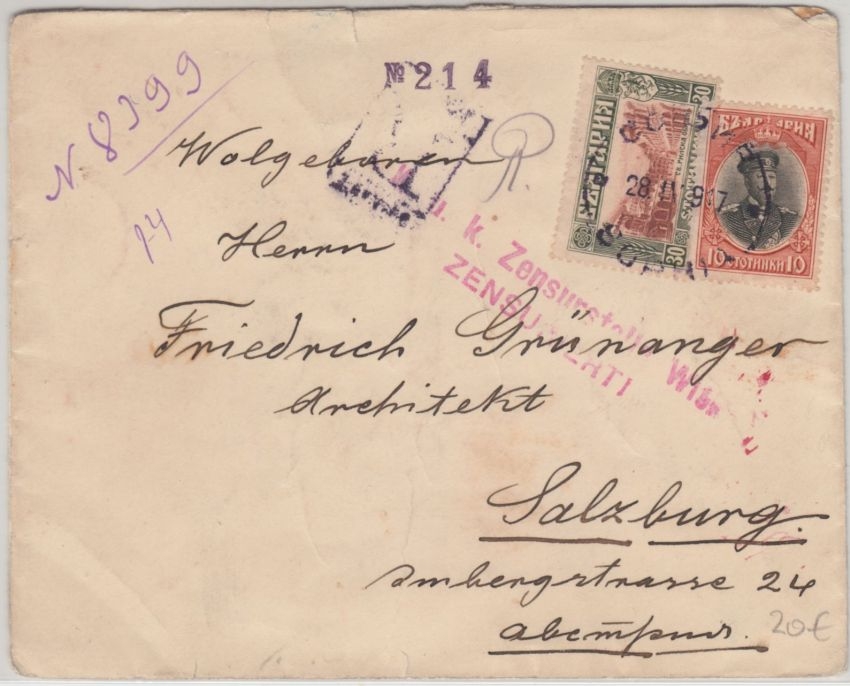 № 214
N 8399
14
R.
Wolgeboren
Herrn
Friedrich Grünanger
Architekt
Salzburg.
Imbergstrasse 24
Австрия.
20€
u. k. Zensurstelle Wien
ZENSURIERT!
БЪЛГАРИЯ
30
30
28.II.1917
БЪЛГАРИЯ
10 СТОТИНКИ 10